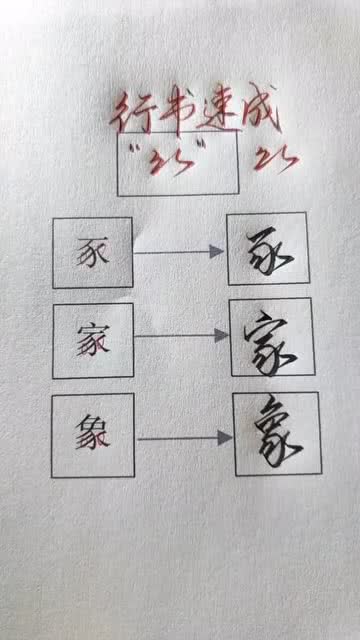 行书速成
豕
家
象
豕
家
象